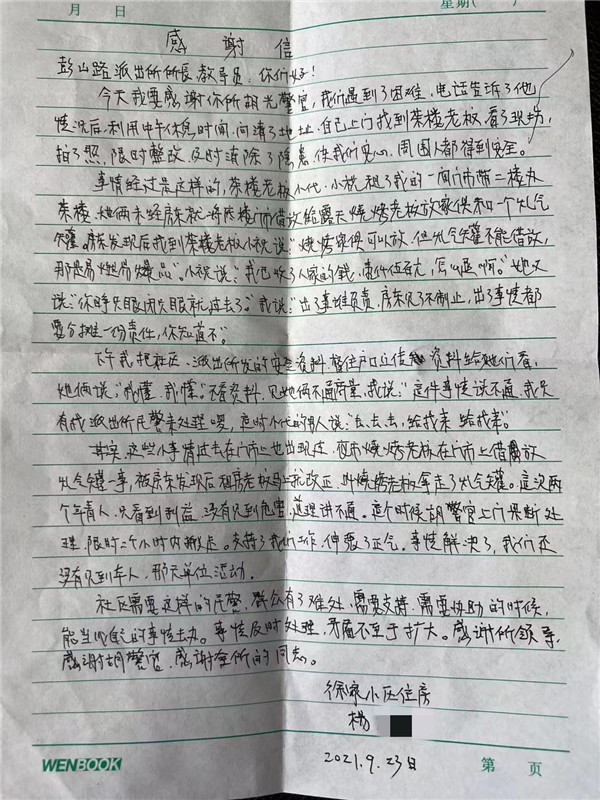 月 日 星期( )
感谢信
彭山路派出所所长教导员，你们好！
今天我要感谢你所胡光警官，我们遇到了困难，电话告诉了他
情况后，利用中午休息时间，问清了地址，自己上门找到茶楼老板，看了现场，
拍了照，限时整改，及时消除了隐患，使我们安心，周围人都得到安全。
事情经过是这样的，茶楼老板小代、小祝租了我的一间门市带二楼办
茶楼，她俩未经房东就将茶楼门市借放给露天烧烤老板放家俱和一个气
罐。房东发现后找到茶楼老板小祝说："烧烤家俱可以放，但气罐不能借放，
那是易燃易爆品"。小祝说："我已收了人家的钱，壹仟伍百元，怎么退啊。"她又
说："你睁只眼闭只眼就过去了。"我说："出了事谁负责，房东见了不制止，出了事情都
要分摊一份责任，你知道不"。
下午我把社区、派出所发的安全资料 资料给她们看，
她俩说："我懂，我懂。"不看资料，见她俩不通商量，我说："这件事情说不通，我只
有找派出所民警来处理"，这时小代的男人说："去去去，给我来给我来"。
其实，这些小事情过去在门市上也出现过，夜市烧烤老板在门市上借放
气罐一事，被房东发现后租房老板马上就改正，叫烧烤老板拿走了气罐。这次两
个年青人，只看到利益，没有见到危害，道理讲不通。这个时候胡警官上门果断处
理，限时二个小时内搬走。支持了我们工作，伸张了正气。事情解决了，我们还
没有见到本人，那天单位活动。
社区需要这样的民警，群众有了难处，需要支持，需要协助的时候，
能当成自己的事情去办。事情及时处理，矛盾不至于扩大。感谢所领导，
感谢胡警官，感谢全所的同志。
徐家小区住房
杨
2021.9.23日
WENBOOK 第 页